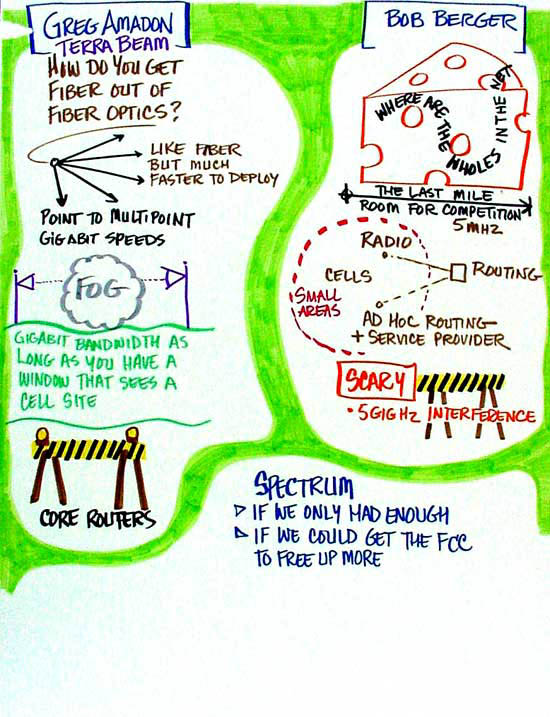 GREG AMADON
TERRA BEAM
HOW DO YOU GET
FIBER OUT OF
FIBER OPTICS?
LIKE FIBER
BUT MUCH
FASTER TO DEPLOY
POINT TO MULTIPOINT
GIGABIT SPEEDS
FOG
GIGABIT BANDWIDTH AS
LONG AS YOU HAVE A
WINDOW THAT SEES A
CELL SITE
CORE ROUTERS
BOB BERGER
WHERE ARE THE WHOLES IN THE NET
THE LAST MILE
ROOM FOR COMPETITION
5MHZ
RADIO
CELLS
ROUTING
SMALL
AREAS
AD HOC ROUTING
+ SERVICE PROVIDER
SCARY
• 5GIGHZ INTERFERENCE
SPECTRUM
▷ IF WE ONLY HAD ENOUGH
▷ IF WE COULD GET THE FCC
TO FREE UP MORE